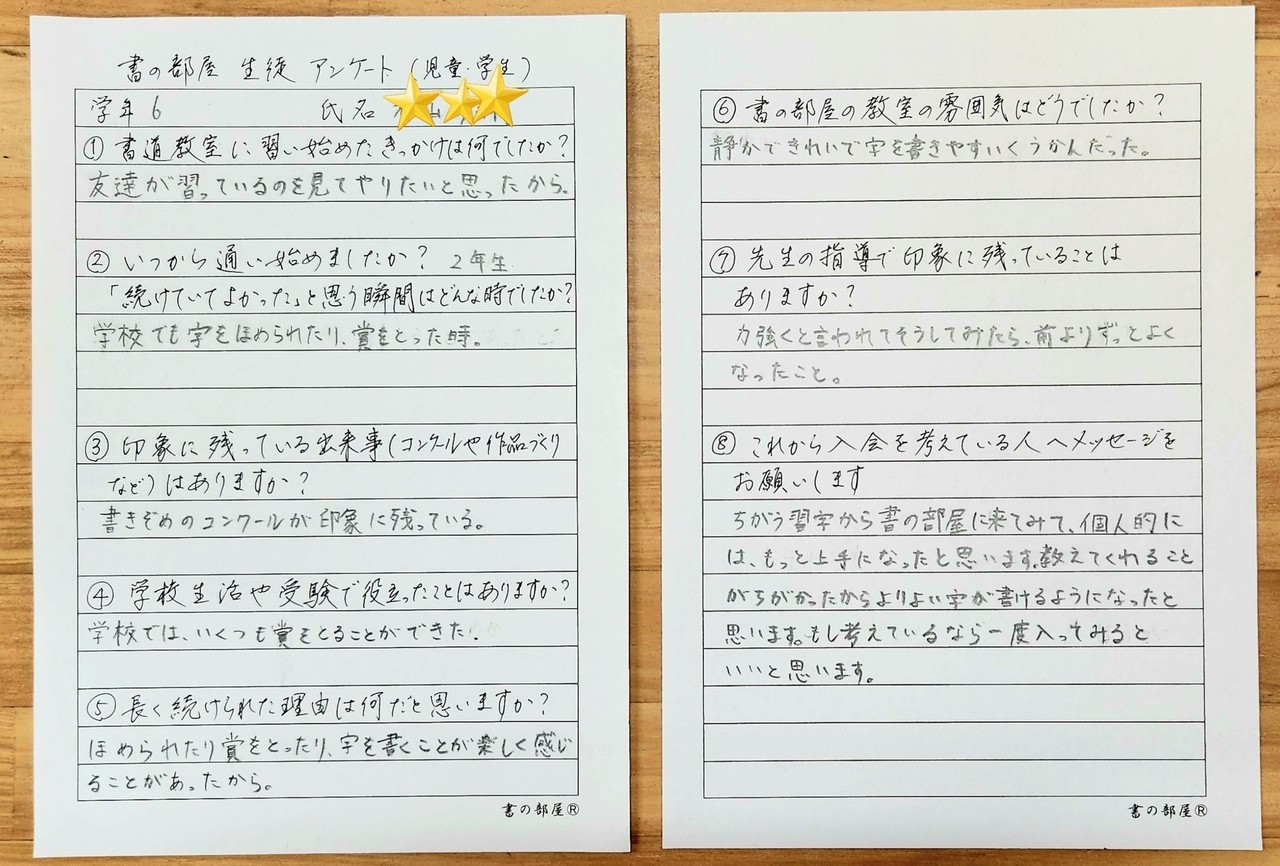 書の部屋 生徒 アンケート (児童・学生)
学年 6 氏名
① 書道教室に習い始めたきっかけは何でしたか?
友達が習っているのを見てやりたいと思ったから。
② いつから通い始めましたか? 2年生
「続けていてよかった」と思う瞬間はどんな時でしたか?
学校でも字をほめられたり、賞をとった時。
③ 印象に残っている出来事(コンクールや作品づくり
など)はありますか?
書きぞめのコンクールが印象に残っている。
④ 学校生活や受験で役立ったことはありますか?
学校では、いくつも賞をとることができた。
⑤ 長く続けられた理由は何だと思いますか?
ほめられたり賞をとったり、字を書くことが楽しく感じ
ることがあったから。
書の部屋®
⑥ 書の部屋の教室の雰囲気はどうでしたか?
静かできれいで字を書きやすいくうかんだった。
⑦ 先生の指導で印象に残っていることは
ありますか?
力強くと言われてそうしてみたら、前よりずっとよく
なったこと。
⑧ これから入会を考えている人へメッセージを
お願いします
ちがう習字から書の部屋に来てみて、個人的に
は、もっと上手になったと思います。教えてくれること
がちがかったからよりよい字が書けるようになったと
思います。もし考えているなら一度入ってみると
いいと思います。
書の部屋®